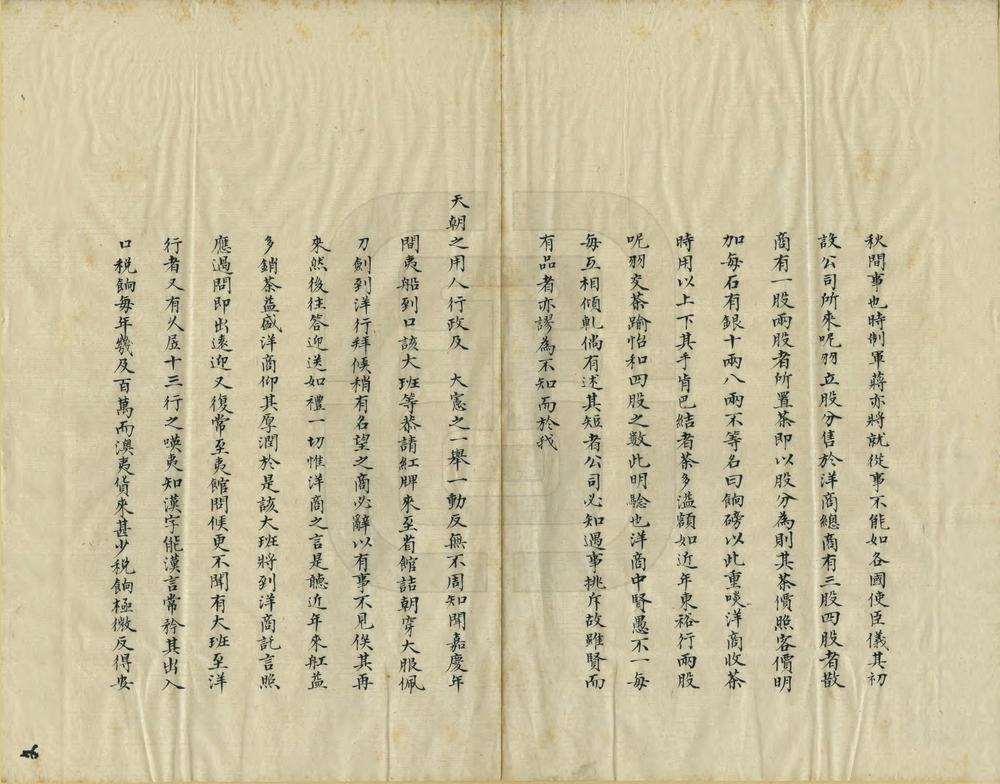 秋間事也時制軍蔣亦將就從事不能如各國使臣儀其初
設公司所來呢羽立股分售於洋商總商有三股四股者散
商有一股兩股者所置茶即以股分為則其茶價照客價明
加每石有銀十兩八兩不等名曰餉磅以此重啖洋商收茶
時用以上下其手肯巴結者茶多溢額如近年東裕行兩股
呢羽交茶踰怡和四股之數此明驗也洋商中賢愚不一每
每互相傾軋偶有述其短者公司必知遇事挑斥故雖賢而
有品者亦謬為不知而於我
天朝之用人行政及 大憲之一舉一動反無不周知聞嘉慶年
間夷船到口該大班等恭請紅牌來至省館詰朝穿大服佩
刀劍到洋行拜候稍有名望之商必辭以有事不見俟其再
來然後往答迎送如禮一切惟洋商之言是聽近年來舡益
多銷茶益盛洋商仰其厚潤於是該大班將到洋商託言照
應過問即出遠迎又復常至夷館問候更不聞有大班至洋
行者又有久居十三行之嘆夷知漢字能漢言常矜其出入
口稅餉每年幾及百萬而澳夷貨來甚少稅餉極微反得安